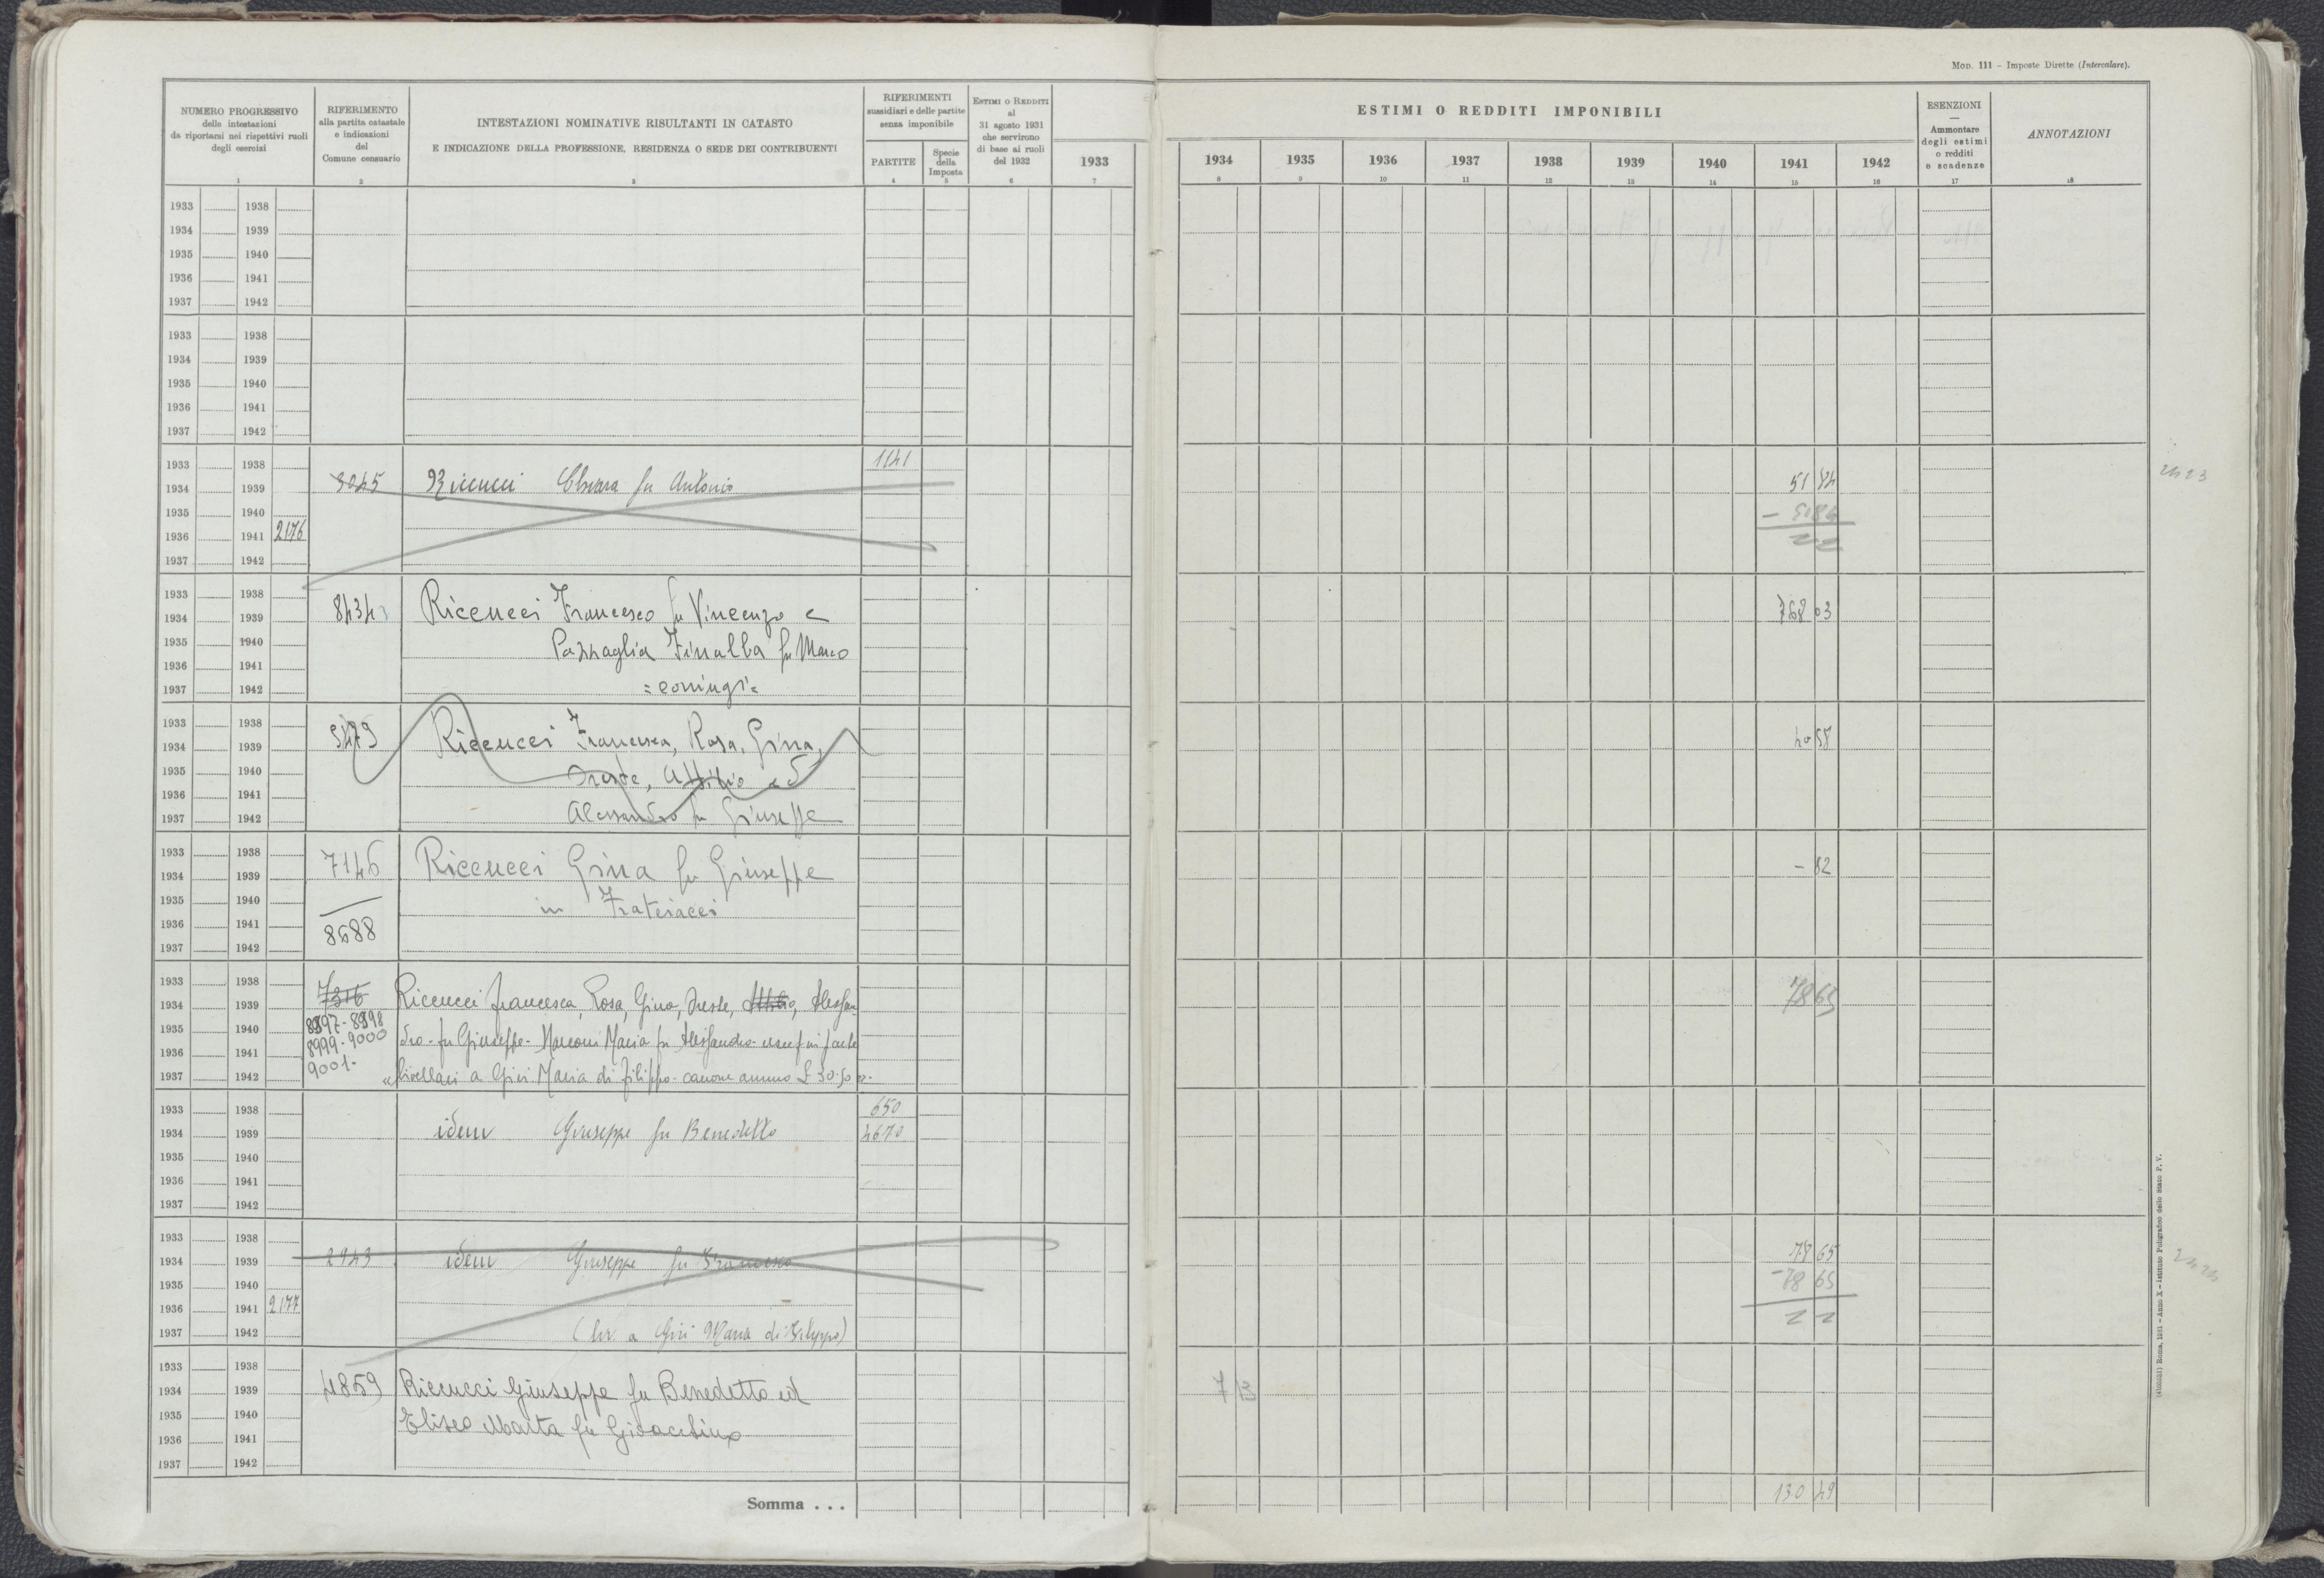 MOD. 111 – Imposte Dirette (Intercalare).
NUMERO PROGRESSIVO
delle intestazioni
da riportarsi nei rispettivi ruoli
degli esercizi
1
RIFERIMENTO
alla partita catastale
e indicazioni
del
Comune censuario
2
INTESTAZIONI NOMINATIVE RISULTANTI IN CATASTO
E INDICAZIONE DELLA PROFESSIONE, RESIDENZA O SEDE DEI CONTRIBUENTI
3
RIFERIMENTI
sussidiari e delle partite
senza imponibile
PARTITE
4
Specie
della
Imposta
5
ESTIMI O REDDITI
al
31 agosto 1931
che servirono
di base ai ruoli
del 1932
6
1933
7
ESTIMI O REDDITI IMPONIBILI
1934 1935 1936 1937 1938 1939 1940 1941 1942
8 9 10 11 12 13 14 15 16
ESENZIONI
—
Ammontare
degli estimi
o redditi
e scadenze
17
ANNOTAZIONI
18
1933 1938
1934 1939
1935 1940
1936 1941
1937 1942
1933 1938
1934 1939
1935 1940
1936 1941
1937 1942
1933 1938 1141
1934 1939 Riccucci Chiara fu Antonio 51 84
1935 1940 – 5184
1936 1941 2176
1937 1942
1933 1938
1934 1939 Riccucci Francesco fu Vincenzo e 768 03
1935 1940 Pazzaglia Finalba fu Marco
1936 1941
1937 1942 = coniugi =
1933 1938
1934 1939 Riccucci Francesca, Rosa, Gina, 40 58
1935 1940 Oreste, Attilio ed
1936 1941
1937 1942 Alessandro fu Giuseppe
1933 1938
1934 1939 7146 Riccucci Gina fu Giuseppe – 82
1935 1940 in
1936 1941 8688
1937 1942
1933 1938 7316 78 65
1934 1939 Riccucci Francesca, Rosa, Gina, Oreste, Attilio, Alessan
1935 1940 8997-8998
1936 1941 8999-9000 dro fu Giuseppe - Marconi Maria fu Alessandro - usuf in parte
1937 1942 9001- "livellari a Giri Maria di Filippo - canone annuo £ 30.50 "
1933 1938 650
1934 1939 idem Giuseppe fu Benedetto 4670
1935 1940
1936 1941
1937 1942
1933 1938
1934 1939 2943 idem Giuseppe fu Francesco 78 65
1935 1940 – 78 65
1936 1941 2177
1937 1942 (liv. a Giri Maria di Filippo)
1933 1938
1934 1939 4859 Riccucci Giuseppe fu Benedetto ed
1935 1940 Eliseo Marta fu Gioacchino
1936 1941
1937 1942
Somma . . . 130 49